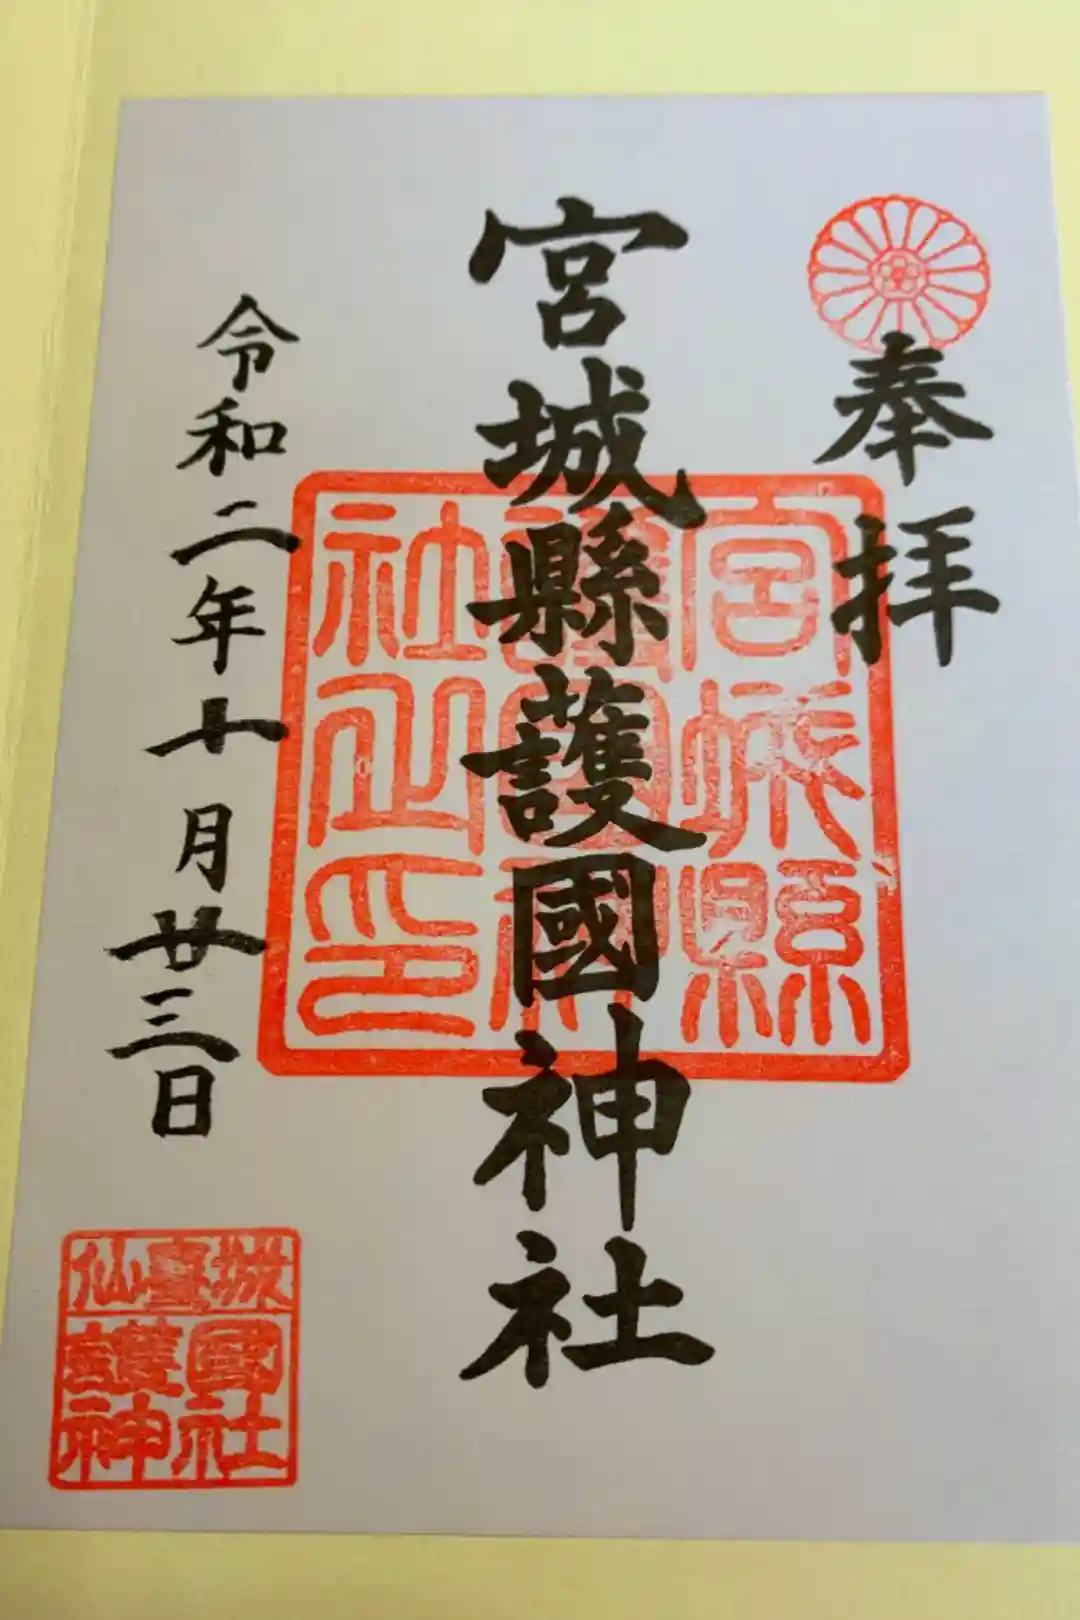 奉拝
宮城縣護國神社
令和二年十月廿三日
宮城縣
護國神
社之印
仙臺城
護國
神社